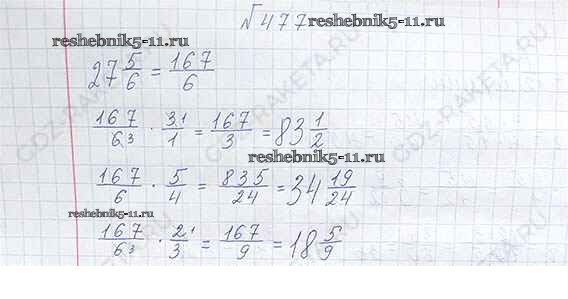 №477
reshebnik5-11.ru
reshebnik5-11.ru
27 5/6 = 167/6
167/63 · 31/1 = 167/3 = 83 1/2
reshebnik5-11.ru
167/6 · 5/4 = 835/24 = 34 19/24
reshebnik5-11.ru
167/63 · 21/3 = 167/9 = 18 5/9
GDZ-RAKETA.RU
GDZ-RAKETA.RU